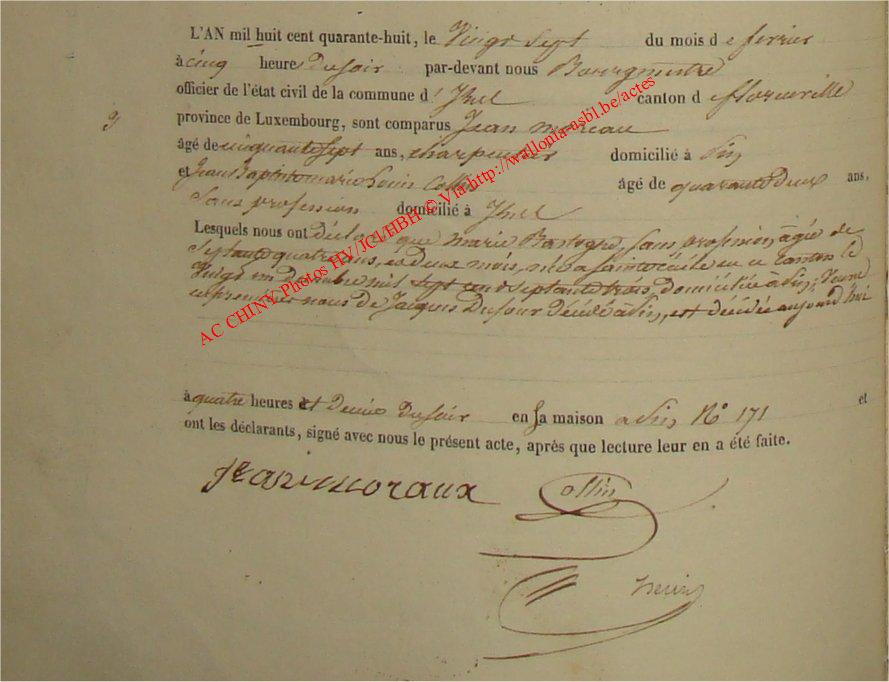 L'AN mil huit cent quarante-huit, le Vingt Sept du mois d e fevrier
à cinq heure Du soir par-devant nous Bourgmestre
officier de l'état civil de la commune d' Izel canton d e florenville
9
province de Luxembourg, sont comparus Jean moreau
âgé de cinquante Sept ans, charpentier domicilié à
et Jean Baptiste marie Louis Collin âgé de quarante Deux ans,
Sans profession domicilié à Izel
Lesquels nous ont déclaré que marie Bastogne, sans profession, agée de
Septante quatre ans, et deux mois, née a Sainte cécile en ce canton le
Vingt un Decembre mil sept cent septante trois, Domiciliée à Veuve
en premier noces de Jacques Dufour Décédé à est décédée aujourd'hui
à quatre heures et Demie Du soir en sa maison a N° 171 et
ont les déclarants, signé avec nous le présent acte, après que lecture leur en a été faite.
Jean moraux Collin
AC CHINY, Photos HV/JCl/HBH © Via http://wallonia-asbl.be/actes